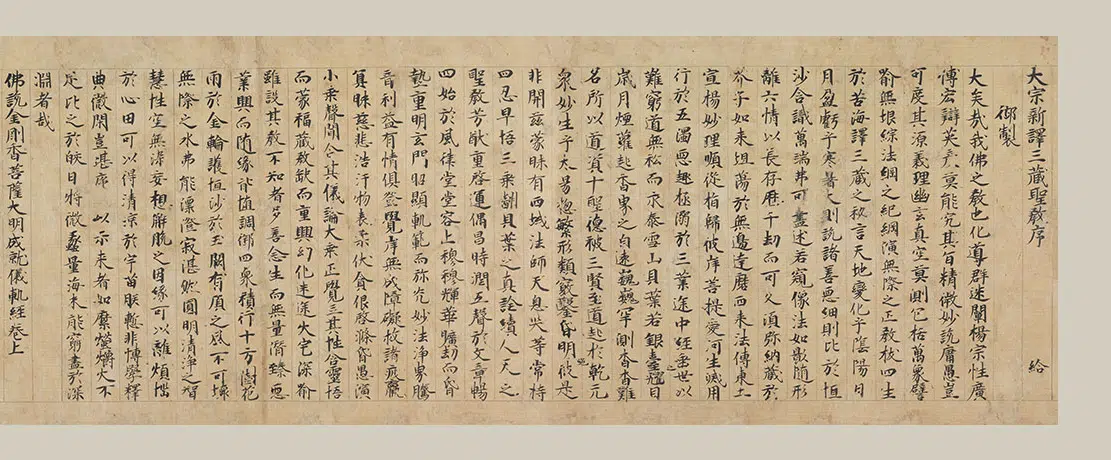 大宗新譯三藏聖教序 給
御製
大矣哉我佛之教也化導群迷闡楊宗性廣
博宏辯英彥莫能究其旨精微妙說庸愚豈
可度其源義理幽言真空莫測包括萬象譬
喻無垠綜法網之紀綱演無際之正教拔四生
於苦海譯三藏之秘言天地變化乎陰陽日
月盈虧乎寒暑大則說諸善惡細則比於恒
沙含識萬端弗可盡述若窺像法如影隨形
離六情以長存歷千劫而可久須弥納藏於
芥子如來坦蕩於無邊達磨西來法傳東土
宣楊妙理順從指歸彼岸菩提愛河生滅用
行於五濁惡趣拯溺於三業途中經垂世以
難窮道無松而永泰雪山貝葉若銀臺耀目
歲月煙蘿起香界之自遠巍巍罕測杳杳難
名所以道資十聖德被三賢至道起於乾元
衆妙生乎太易惣繁形類竅鑿昏明彼是
非開茲蒙昧有西域法師天息灾等常持
四忍早悟三乘翻貝葉之真詮續人天之
聖教芳猷重啓運偶昌時潤五聲於文章暢
四始於風律堂堂容止穆穆輝華曠劫而昏
蟄重明玄門昭顯軌範而弥光妙法淨界騰
音利益有情俱登覺岸無成障礙救諸疲羸
冥昧慈悲浩汗物表柔伏貪佷啓滌昏愚演
小乘聲聞合其儀論大乘正覺立其性含靈悟
而蒙福藏教缺而重興幻化迷途火宅深喻
雖說其教不知者多善念生而無量潛臻惡
業興而隨緣皆墮調御四衆積行十方園花
雨於金輪護恒沙於玉闕有頂之風不可壞
無際之水弗能漂澄寂湛然圓明清淨之智
慧性空無染妄想解脫之因緣可以離煩惱
於心田可以得清涼於宇苗朕慙非博學釋
典微閑豈堪序 以示來者如縻螢爝火不
足比之於皎日將微蠡量海未能窮盡於深
淵者哉
佛說金剛香菩薩大明成就儀軌經卷上